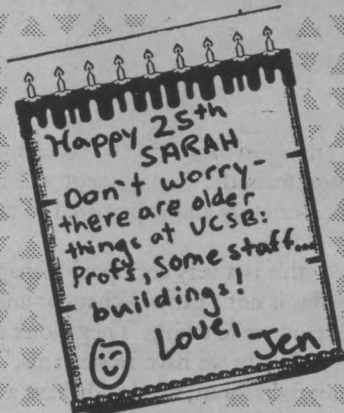 Happy 25th
SARAH
Don't worry-
there are older
things at UCSB:
Profs, some staff...
buildings!
Love,
Jen